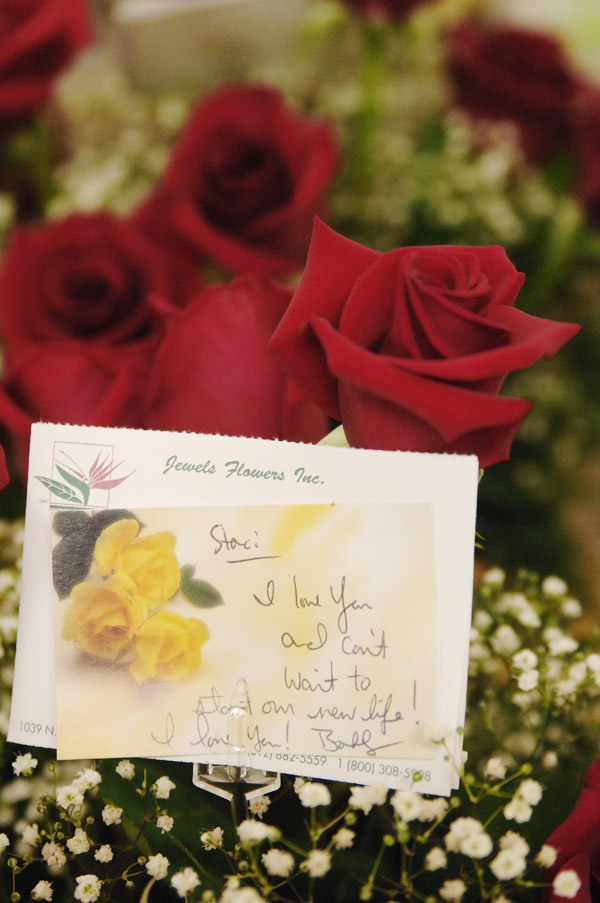 Jewels Flowers Inc.
Staci
I love You
and can't
wait to
start our new life!
I love You!
1039 N.
(812) 882-5559 1 (800) 308-5998